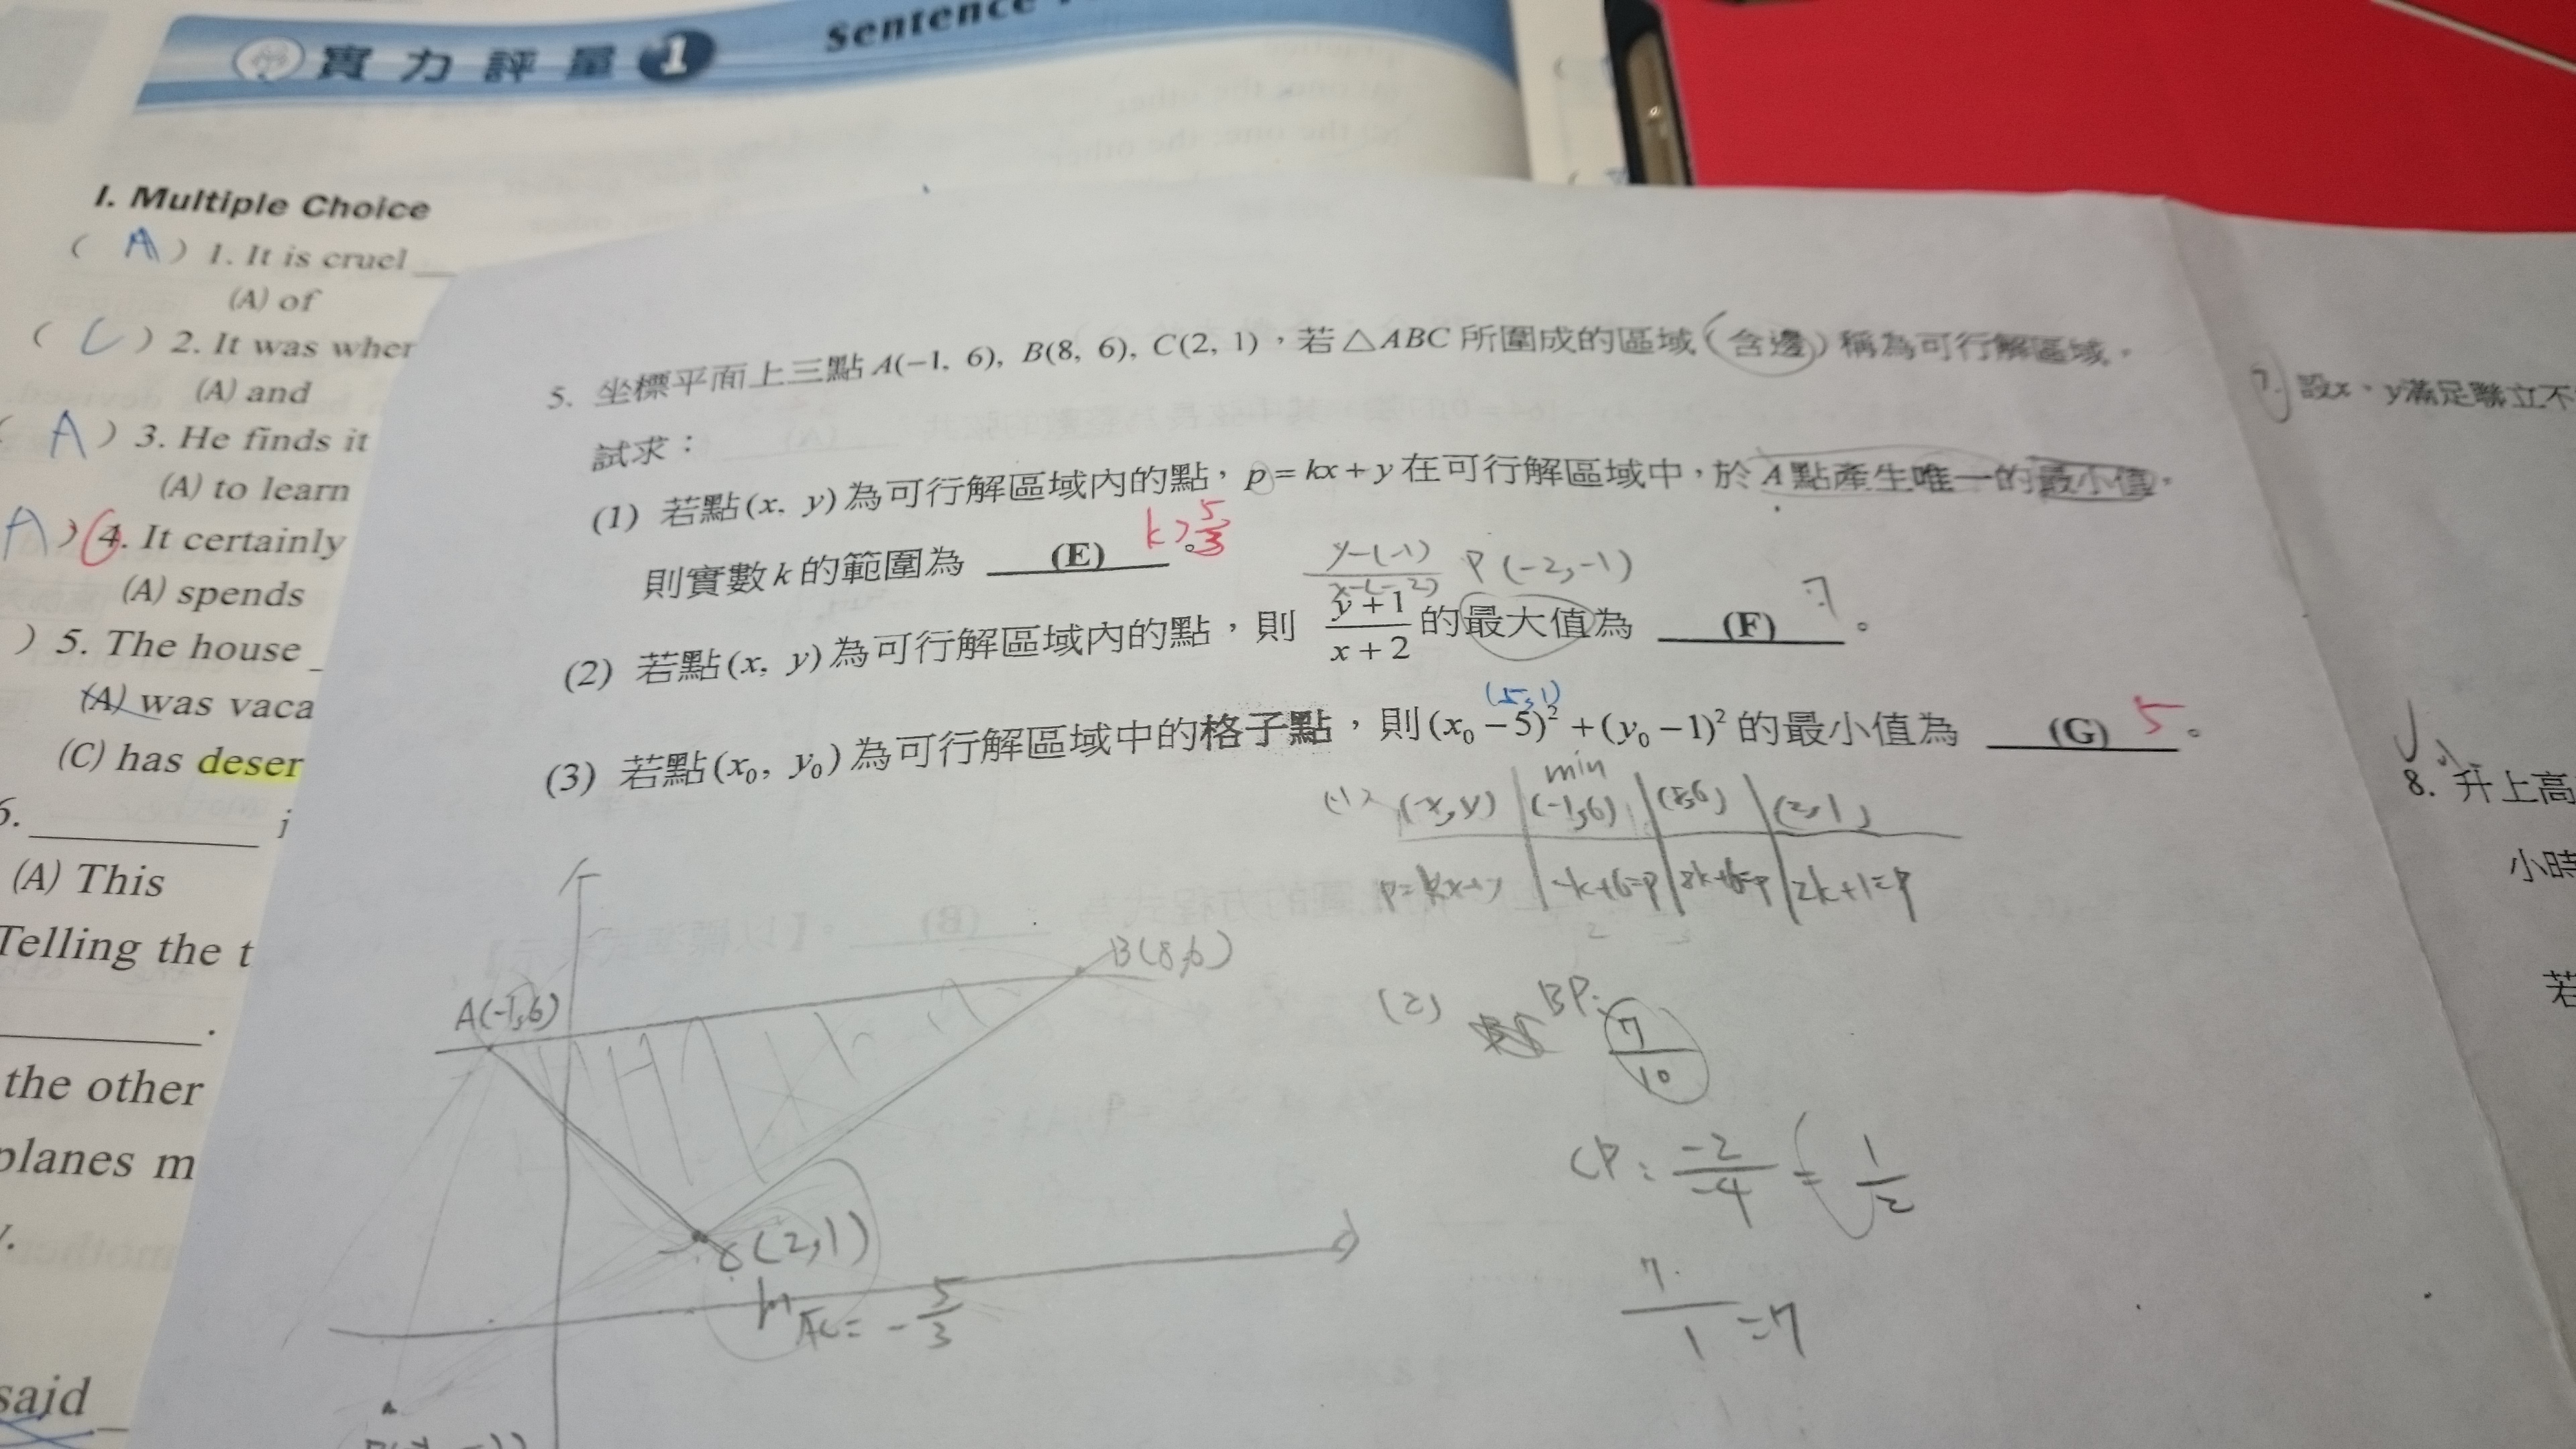 實力評量 1 Sentence
I. Multiple Choice
( A ) 1. It is cruel
(A) of
( C ) 2. It was wher
(A) and
( A ) 3. He finds it
(A) to learn
A ) 4. It certainly
(A) spends
) 5. The house
(A) was vaca
(C) has deser
6. ________ i
(A) This
Telling the t
.
the other
planes m
said
5. 坐標平面上三點 A(−1, 6), B(8, 6), C(2, 1),若△ABC 所圍成的區域(含邊)稱為可行解區域。
試求:
(1) 若點(x, y)為可行解區域內的點,p = kx + y 在可行解區域中,於 A 點產生唯一的最小值,
則實數 k 的範圍為 (E) k > 5/3 。
y-(-1) / x-(-2) P(-2,-1)
(2) 若點(x, y)為可行解區域內的點,則 y+1 / x+2 的最大值為 (F) 7 。
(5,1)
(3) 若點(x₀, y₀)為可行解區域中的格子點,則(x₀ − 5)² + (y₀ − 1)² 的最小值為 (G) 5 。
min
(1) (x,y) (-1,6) (8,6) (2,1)
p=kx+y -k+6=p 8k+6=p 2k+1=p
B(8,6)
A(-1,6)
C(2,1)
m AC = - 5/3
(2) BP: 7/10
CP: -2/-4 = 1/2
7/1 = 7
7. 設x、y滿足聯立不
8. 升上高
小時
若